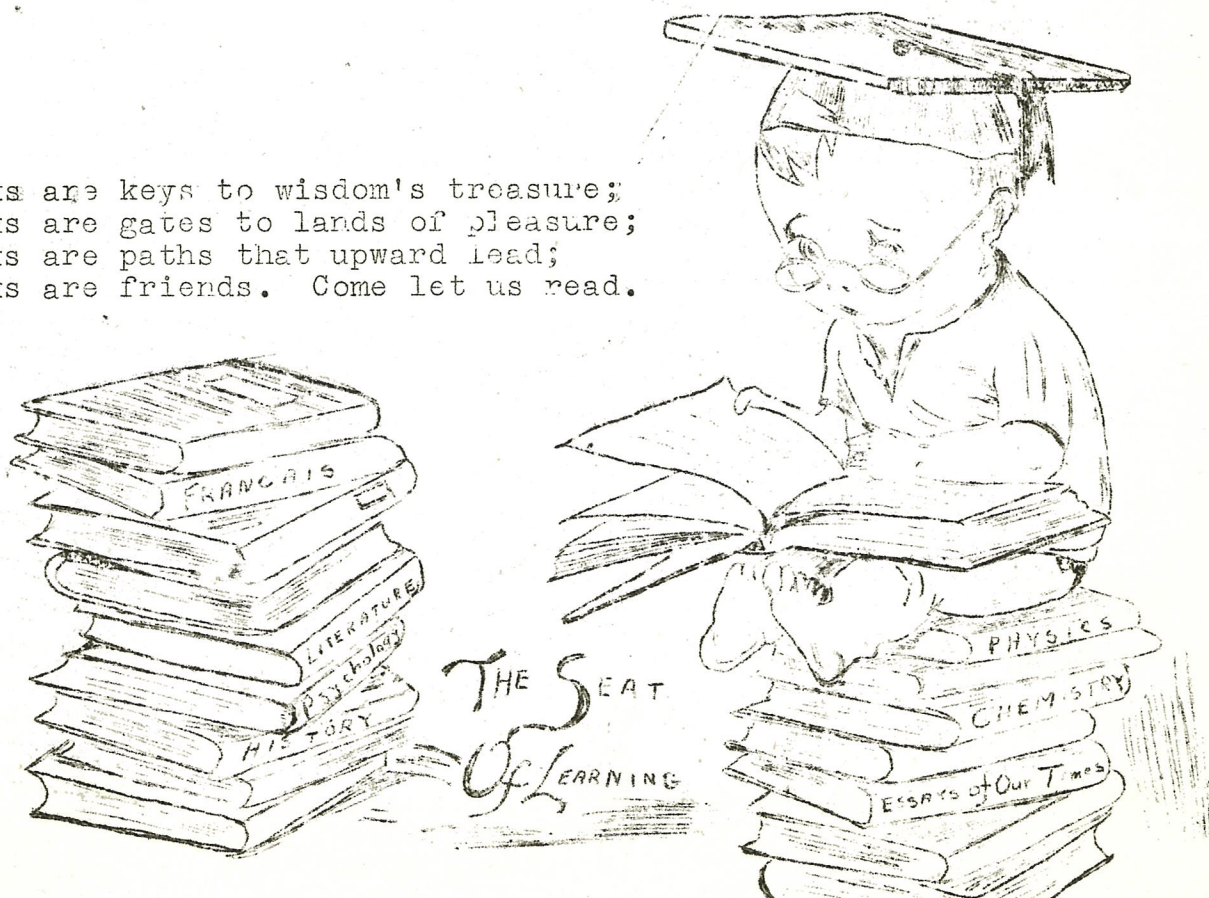 ks are keys to wisdom's treasure;
ks are gates to lands of pleasure;
ks are paths that upward lead;
ks are friends. Come let us read.
FRANCAIS
LITERATURE
Psychology
HISTORY
THE SEAT
Of LEARNING
PHYSICS
CHEMISTRY
ESSAYS of Our Times